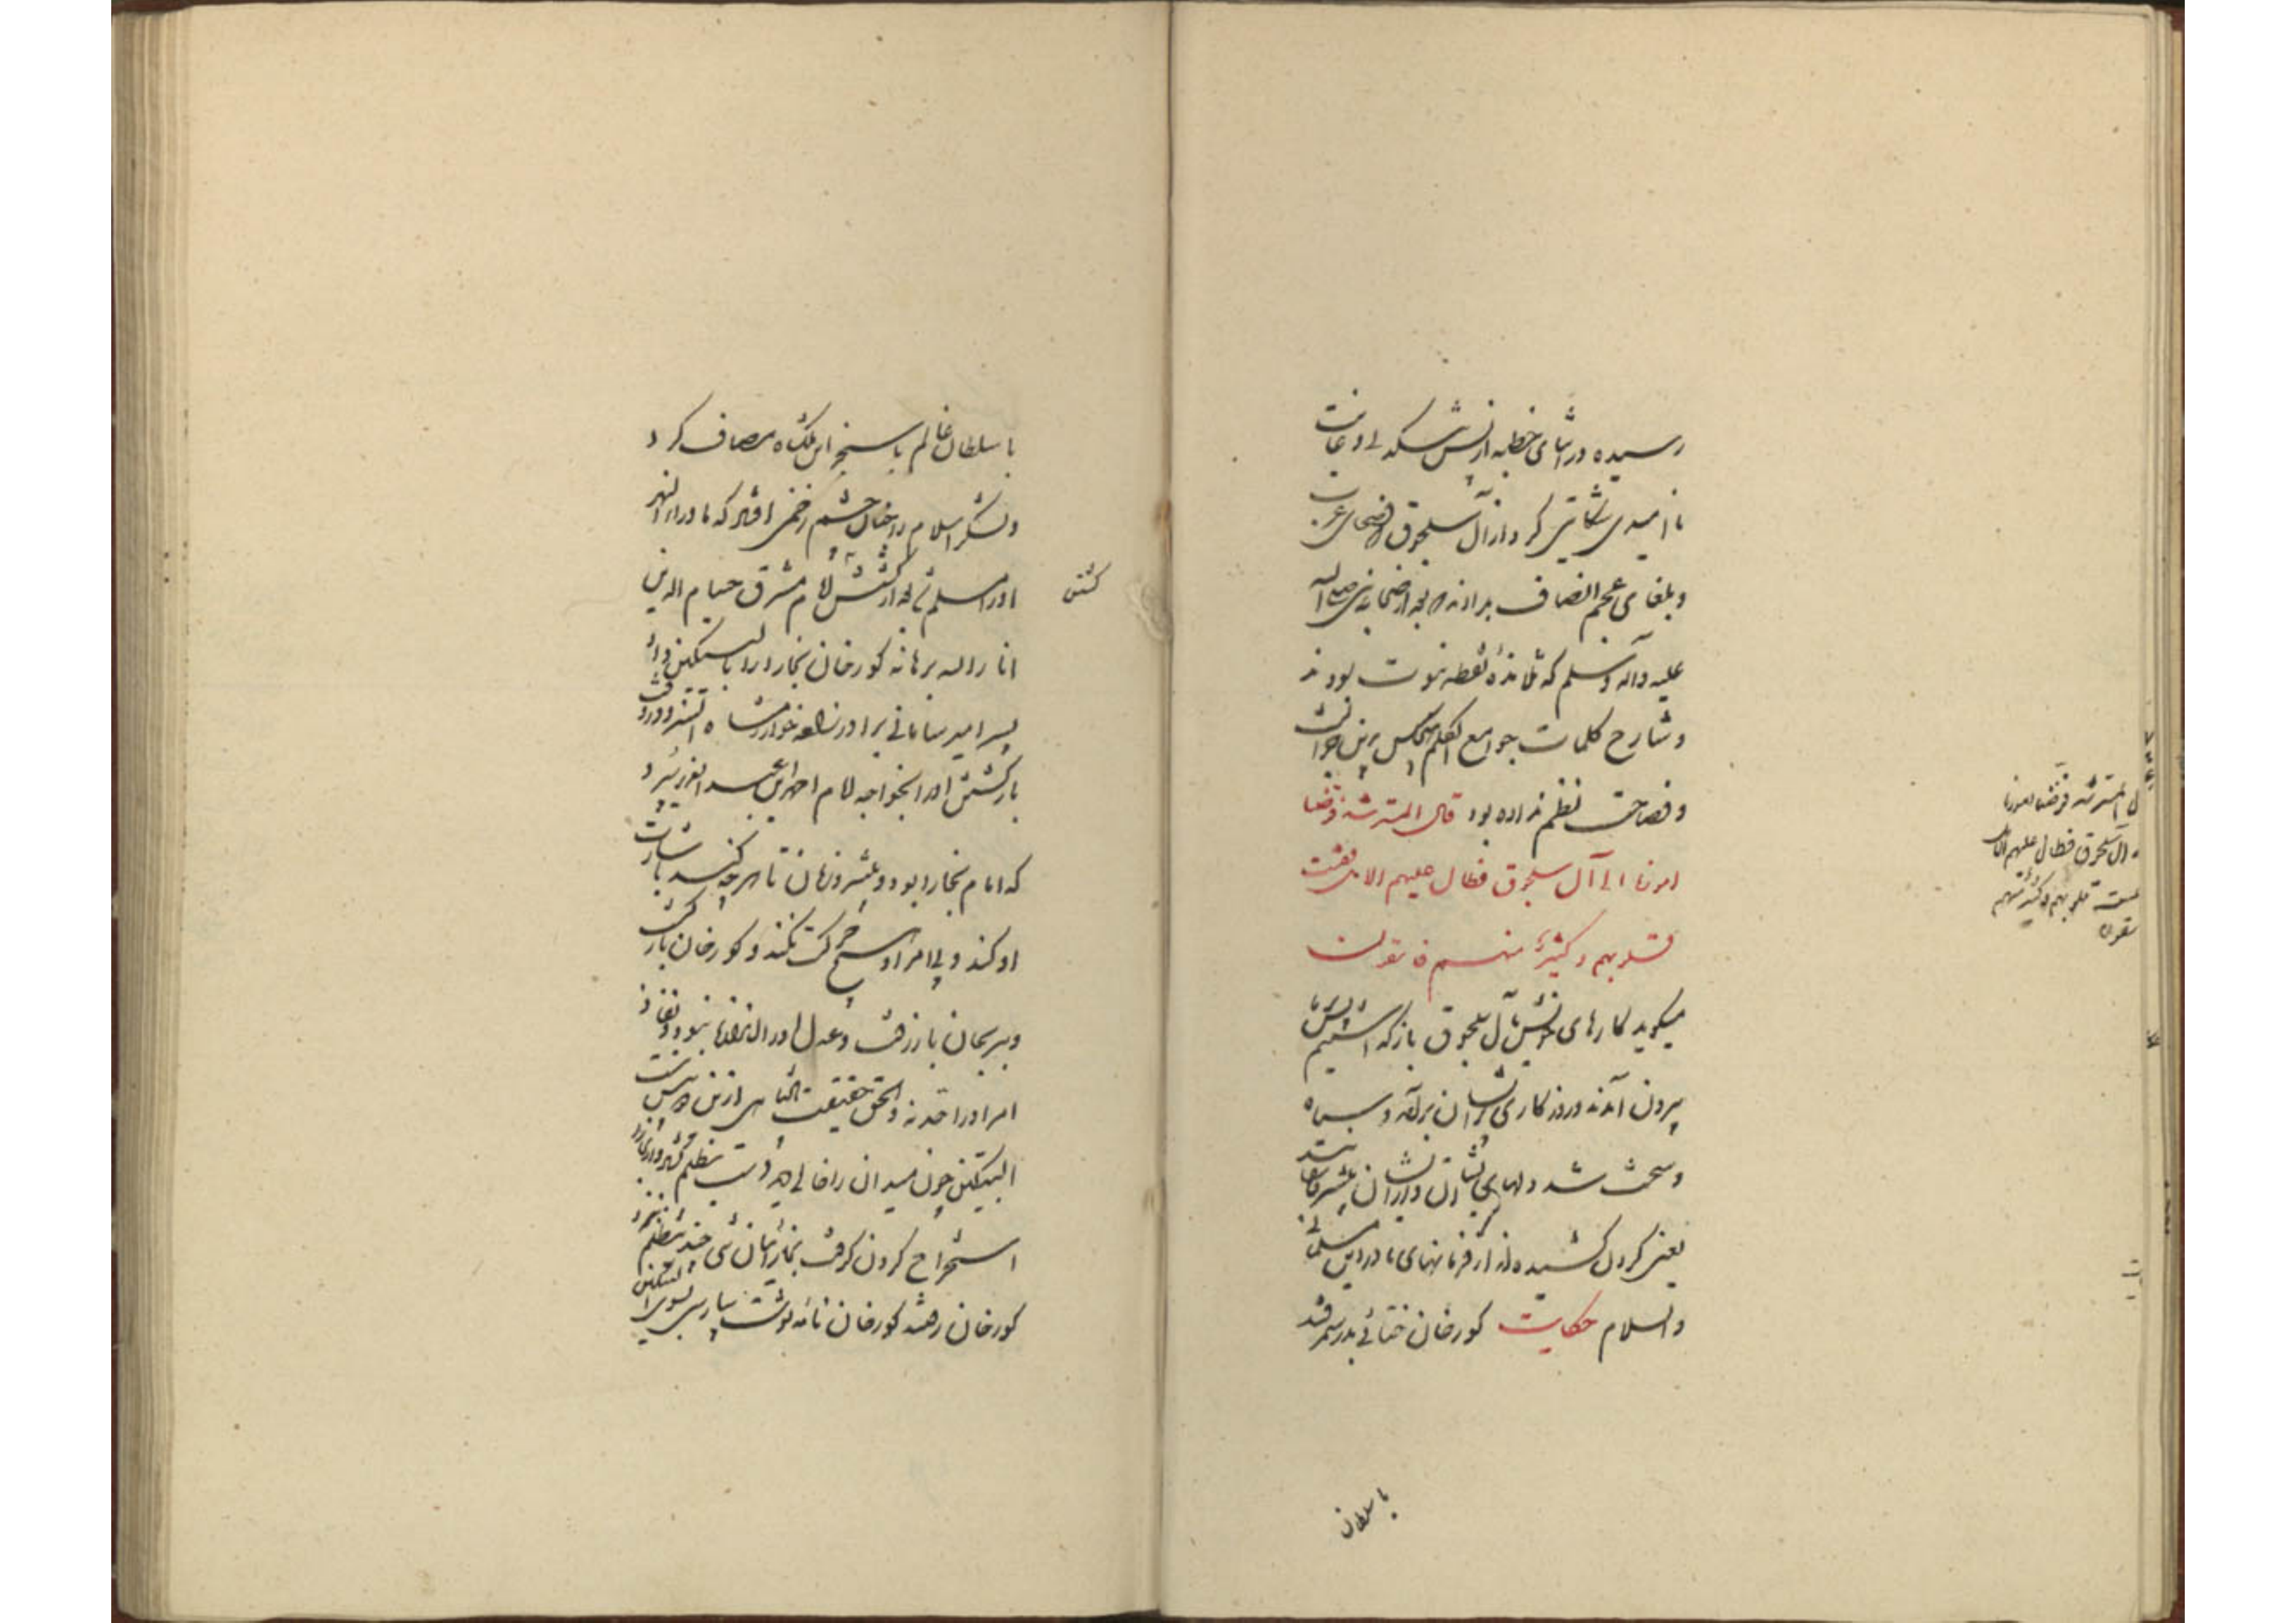 رسیده در اثنای خطبه از تنش سکه
نا امیدی شکایتی کرد از آل سلجوق فصحای عرب
و بلغای عجم انصاف بدادند که بعد از صحابه نبی صلی الله
علیه و آله و سلم که تلامذه نقطه نبوت بودند
و شارح کلمات جوامع الکلم هیچکس برین جزالت
و فصاحت نظم نداده بود قال المسترشد فوضنا
امورنا الی آل سلجوق فطال علیهم الامد فقست
قلوبهم و کثیر منهم فاسقون
میگوید کارهای خویش بآل سلجوق باز گذاشتیم پس بر ما
بیرون آمدند و روزگار برایشان برآمد و سیاه
و سخت شد دلهای ایشان و از ایشان بیشتر فاسقانند
یعنی گردن کشیدند از فرمانهای ما در دین مسلمانی
والسلام حکایت کورخان ختائی بدر سمرقند
با سلطان
المسترشد فوضنا امورنا
آل سلجوق فطال علیهم الامد
قلوبهم و کثیر منهم
با سلطان عالم با سنجر ابن ملکشاه مصاف کرد
و لشکر اسلام را چنان چشم زخمی افتاد که ماوراء النهر
او را مسلم شد بعد از کشتن امام مشرق حسام الدین
کشتن
انار الله برهانه کورخان بخارا را با لبتکین داد
پسر امیر بیابانی برادرزاده خوارزمشاه اتسز و در وقت
بازگشتن او را بخواجه امام احمد بن عبد العزیز سپرد
که امام بخارا بود و پسر برهان تا هرچه کند باشارت
او کند و بی امر او هیچ حرکت نکند و کورخان بازگشت
و ببرسخان باز رفت و عدل او را اندازه نبود و نفاذ
امر او را حد نه و الحق حقیقت پادشاهی ازین دو بیش نیست
البتکین چون میدان را خالی دید دست بظلم برد و از بخارا
استخراج کردن گرفت بخارائیان تنی چند بتظلم نزد
کورخان رفتند کورخان نامه نوشت بپارسی سوی البتکین